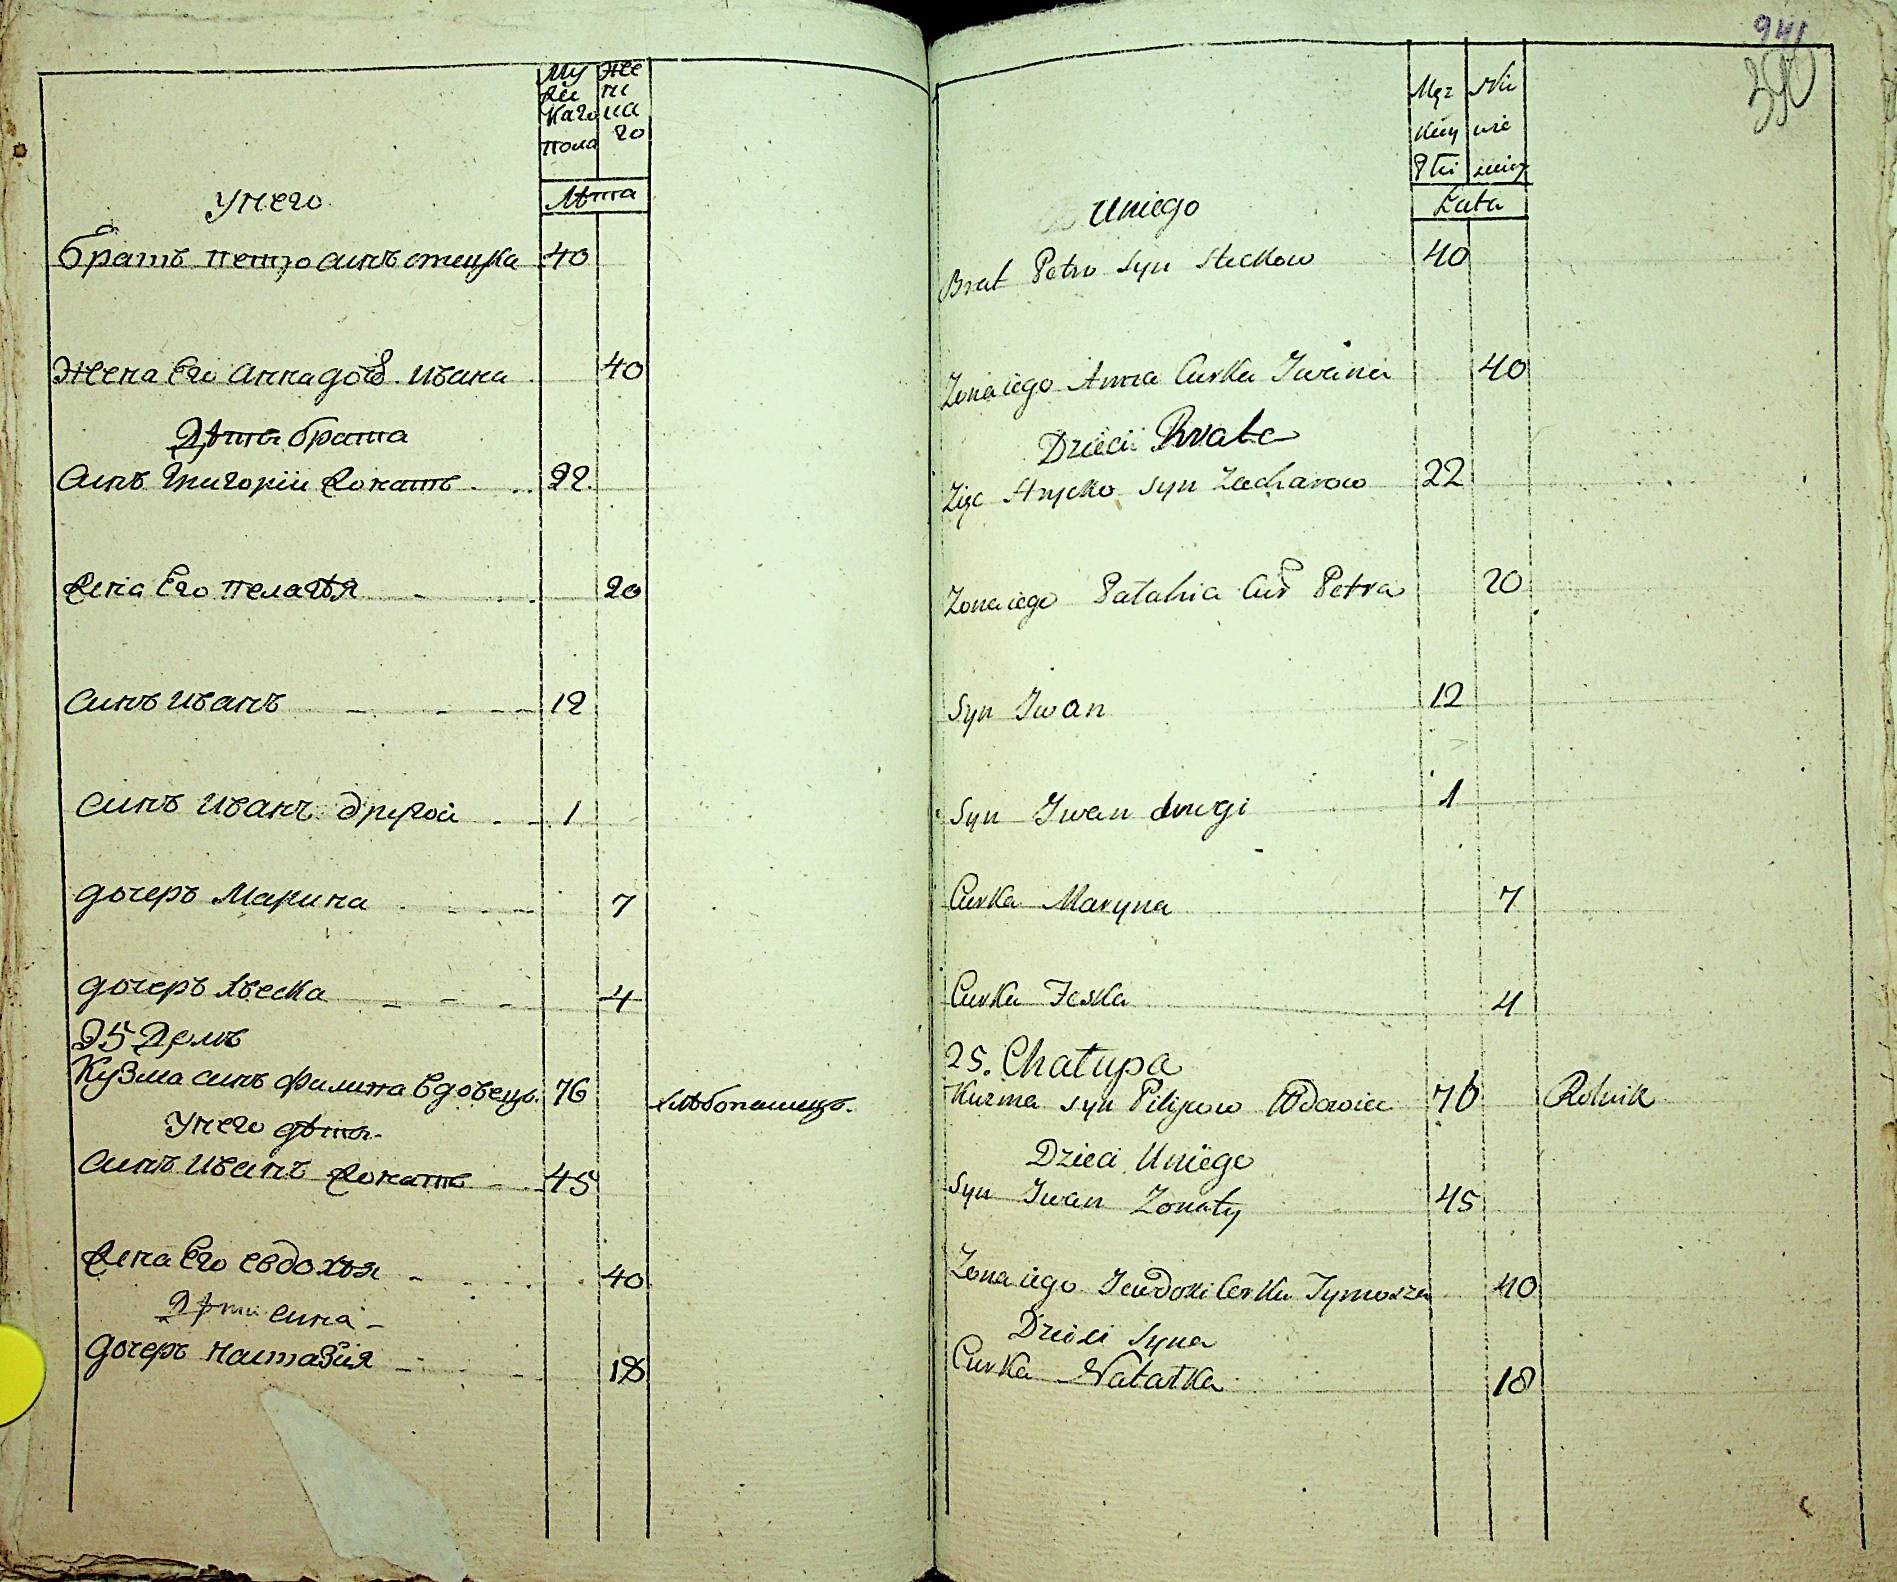 Му Же
жес ни
каго на
пола го
Лѣта
Унего
братъ петро синъ стецка 40
Жена Его анна доч. ивана 40
Дѣти брата
Синъ Григоріи жонатъ 22
жена Его пелагѣя 20
Синъ иванъ 12
Синъ иванъ другой 1
дочеръ Марина 7
дочеръ хвеска 4
25 Домъ
Кузма синъ филипа вдовецъ 76 хлѣбопашецъ.
Унего дѣти
Синъ иванъ жонатъ 45
жена Его евдохѣя 40
Дѣти сина
дочеръ настазия 18
941
390
Męz Nie
kiey wie
Płci sciey
Lata
Uniego
Brat Petro Syn Steckow 40
Zona iego Anna Curka Iwana 40
Dzieci Brata
Zięc Hrycko Syn Zacharow 22
Zona iego Palahia Cur Petra 20
Syn Iwan 12
Syn Iwan drugi 1
Curka Maryna 7
Curka Jeska 4
25. Chałupa
Kuzma syn Pilipow Wdowiec 76 Rolnik
Dzieci Uniego
Syn Iwan Zonaty 45
Zona iego Jewdoki Corka Tymosza 40
Dzieci Syna
Curka Natałka 18